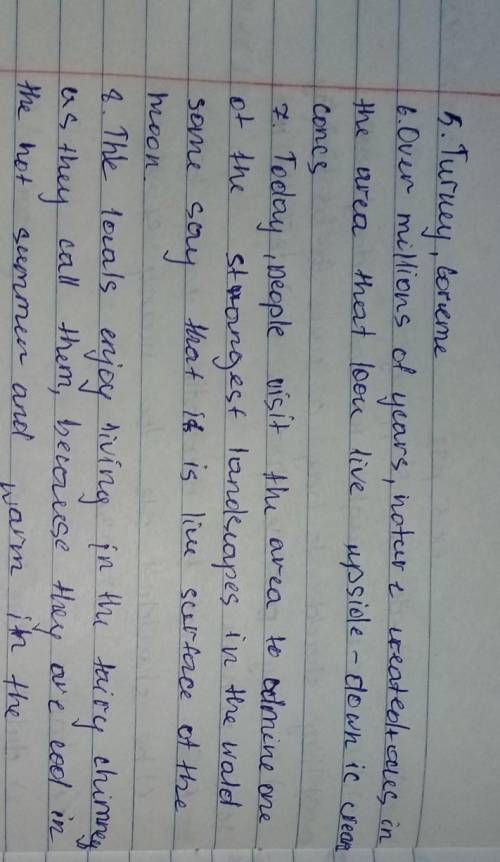 5. Turkey, Goreme
6. Over millions of years, nature created in
the area that look live upside-down ic cream
cones
7. Today, people visit the area to admine one
of the strangest landscapes in the wold
some say that it is live surface of the
moon.
8. The locals enjoy living in the fairy chimney
as they call them, because they are cool in
the hot summer and warm in the